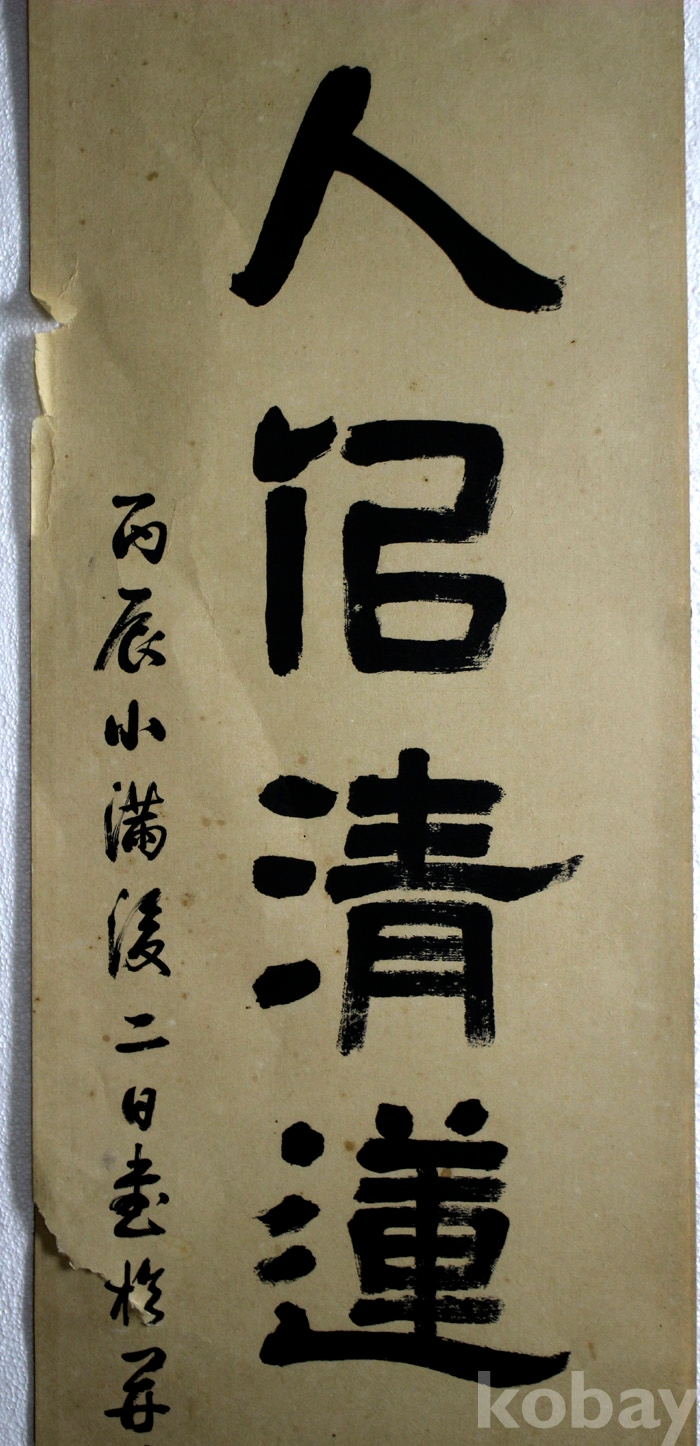 人佀清蓮
丙辰小滿後二日書於